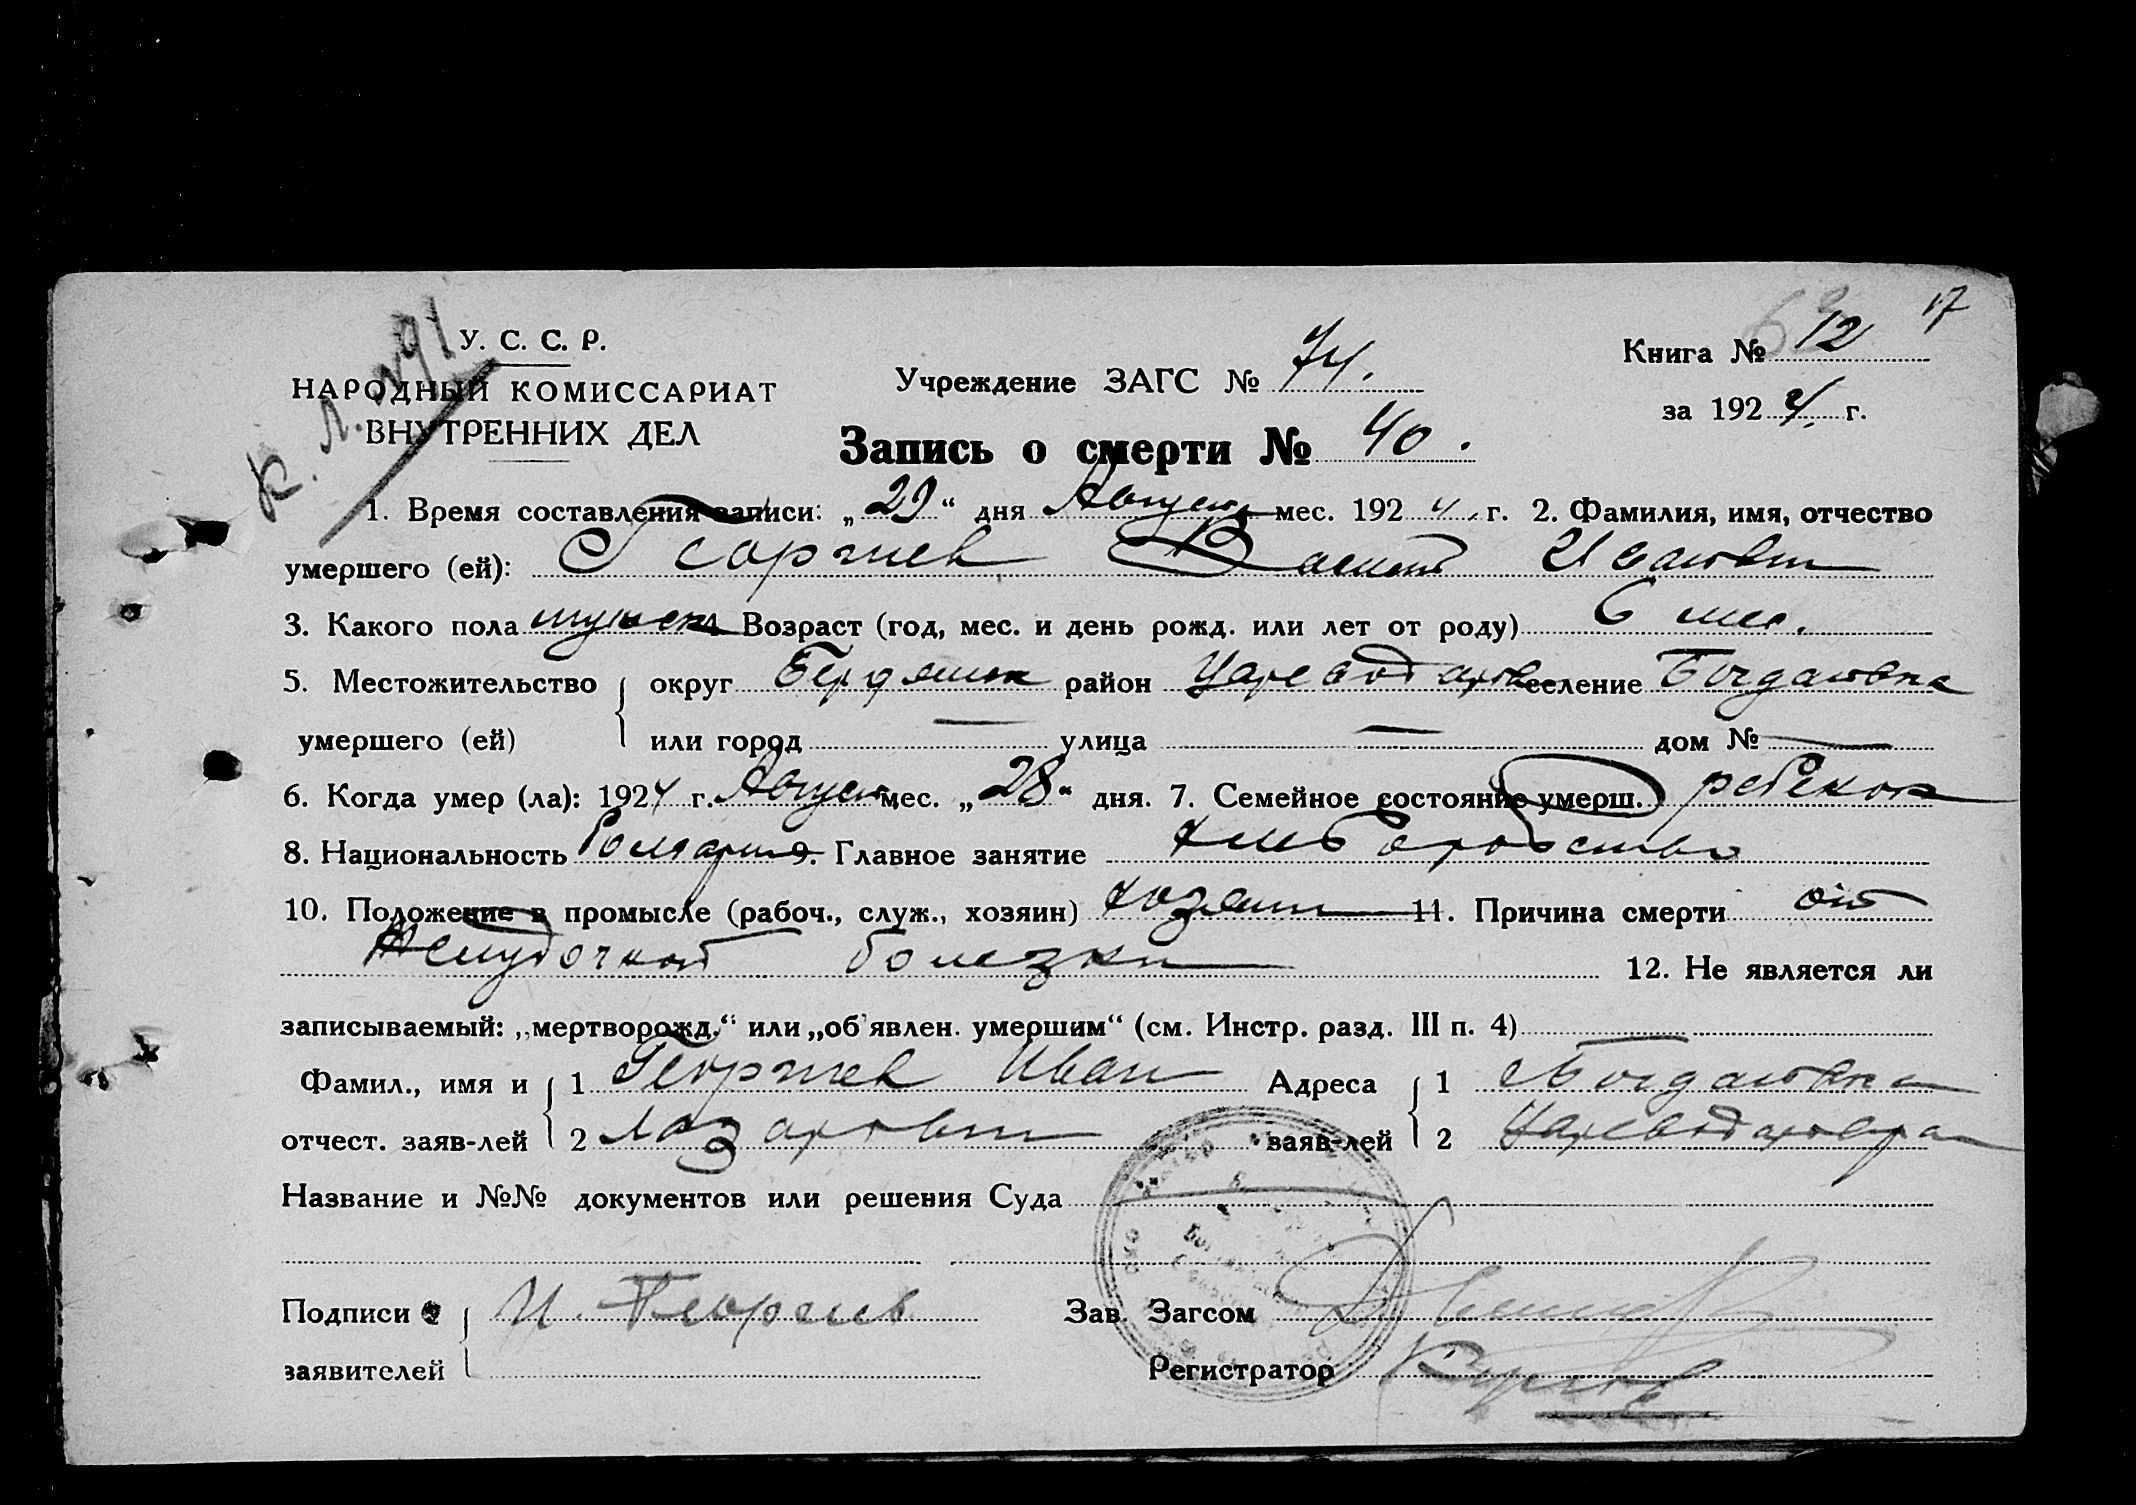 17
К. Л. №91
У. С. С. Р.
НАРОДНЫЙ КОМИССАРИАТ
ВНУТРЕННИХ ДЕЛ
Учреждение ЗАГС № 74.
Книга № 12
за 1924 г.
Запись о смерти № 40.
1. Время составления записи: „29“ дня Август мес. 1924 г. 2. Фамилия, имя, отчество
умершего (ей): Георгиев Василий Иванович
3. Какого пола мужск Возраст (год, мес. и день рожд. или лет от роду) 6 мес.
5. Местожительство округ Бердянск район Цареводаров селение Богдановка
умершего (ей) или город — улица — дом № —
6. Когда умер (ла): 1924 г. Август мес. „28“ дня. 7. Семейное состояние умерш. ребенок
8. Национальность Болгарин 9. Главное занятие хлеборобство
10. Положение в промысле (рабоч., служ., хозяин) хозяин 11. Причина смерти от
желудочной болезни 12. Не является ли
записываемый: „мертворожд.“ или „об'явлен. умершим“ (см. Инстр. разд. III п. 4)
Фамил., имя и 1 Георгиев Иван Адреса 1 с Богдановка
отчест. заяв-лей 2 Лазарович заяв-лей 2 Цареводаров ра
Название и №№ документов или решения Суда
Подписи И. Георгиев Зав. Загсом
заявителей Регистратор